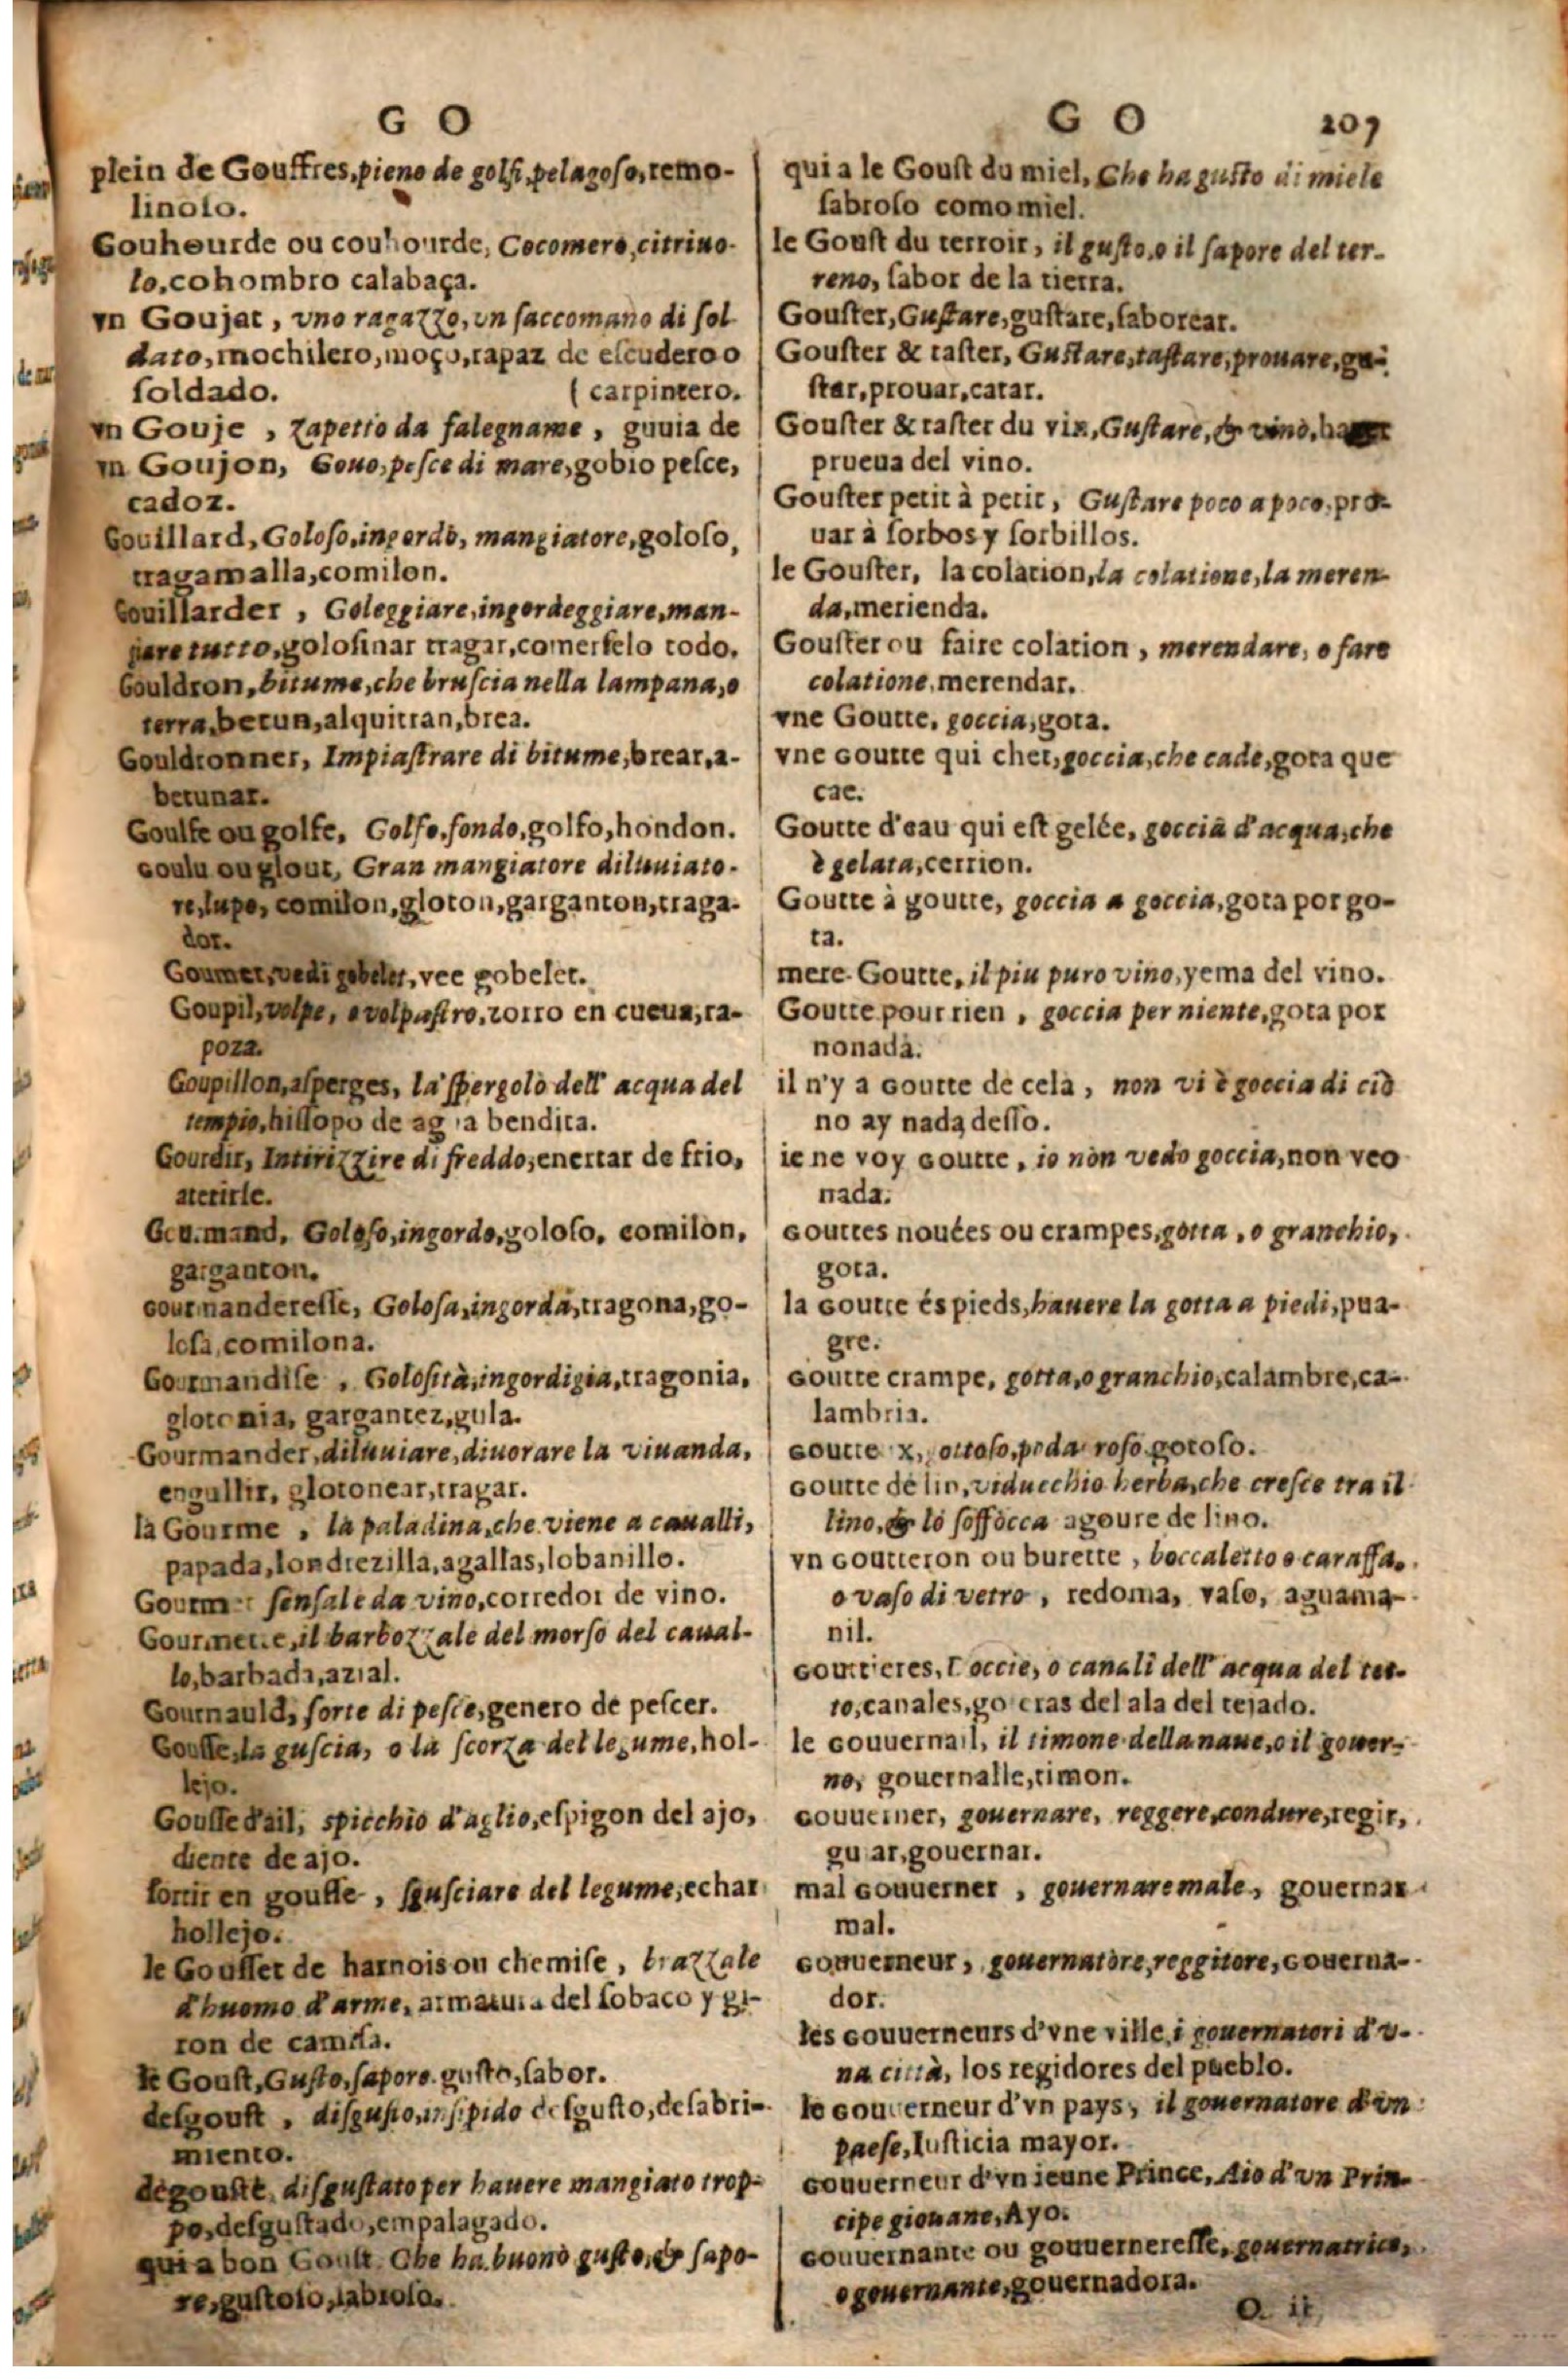 G O
plein de Gouffres, pieno de golfi, pelagoso, remo-
linoſo.
Gouhourde ou couhourde, Cocomero, citriuo-
lo, cohombro calabaça.
vn Goujat, vno ragazzo, vn ſaccomano di ſol-
dato, mochilero, moço, rapaz de eſcudero o
ſoldado. ( carpintero.
vn Gouje, zapetto da falegname, guuia de
vn Goujon, Gouo, peſce di mare, gobio peſce,
cadoz.
Gouillard, Goloſo, ingordo, mangiatore, goloſo,
tragamalla, comilon.
Gouillarder, Goleggiare, ingordeggiare, man-
giare tutto, goloſinar tragar, comerſelo todo.
Gouldron, bitume, che bruſcia nella lampana, o
terra, betun, alquitran, brea.
Gouldronner, Impiaſtrare di bitume, brear, a-
betunar.
Goulfe ou golfe, Golfo, fondo, golfo, hondon.
Goulu ou glout, Gran mangiatore diluuiato-
re, lupo, comilon, gloton, garganton, traga-
dor.
Goumet, vedi gobelet, vee gobelet.
Goupil, volpe, o volpaſtro, zorro en cueua, ra-
poza.
Goupillon, aſperges, la ſpergolo dell' acqua del
tempio, hiſſopo de ag a bendita.
Gourdir, Intirizzire di freddo, enertar de frio,
aterirſe.
Gourmand, Goloſo, ingordo, goloſo, comilon,
garganton.
Gourmandereſſe, Goloſa, ingorda, tragona, go-
loſa, comilona.
Gourmandiſe, Goloſità, ingordigia, tragonia,
glotonia, gargantez, gula.
Gourmander, diluuiare, diuorare la viuanda,
engullir, glotonear, tragar.
la Gourme, la paladina, che viene a caualli,
papada, londrezilla, agallas, lobanillo.
Gourmet ſenſale da vino, corredor de vino.
Gourmette, il barbozzale del morſo del caual-
lo, barbada, azial.
Gournauld, ſorte di peſce, genero de peſcer.
Gouſſe, la guſcia, o la ſcorza del legume, hol-
lejo.
Gouſſe d'ail, spicchio d'aglio, eſpigon del ajo,
diente de ajo.
ſortir en gouſſe, ſguſciare del legume, echar
hollejo.
le Gouſſet de harnois ou chemiſe, brazzale
d'huomo d'arme, armatura del ſobaco y gi-
ron de camiſa.
le Gouſt, Guſto, ſapore. guſto, ſabor.
deſgouſt, diſguſto, inſipido deſguſto, deſabri-
miento.
dégouſté, diſguſtato per hauere mangiato trop-
po, deſguſtado, empalagado.
qui a bon Gouſt. Che ha buono guſto, & ſapo-
re, guſtoſo, ſabroſo.
G O 207
qui a le Gouſt du miel, Che ha guſto di miele
ſabroſo como miel.
le Gouſt du terroir, il guſto, o il ſapore del ter-
reno, ſabor de la tierra.
Gouſter, Guſtare, guſtare, ſaborear.
Gouſter & taſter, Guſtare, taſtare, prouare, gu-
ſtar, prouar, catar.
Gouſter & taſter du vin, Guſtare, & vino,
prueua del vino.
Gouſter petit à petit, Guſtare poco a poco, pro-
uar à ſorbos y ſorbillos.
le Gouſter, la colation, la colatione, la meren-
da, merienda.
Gouſter ou faire colation, merendare, o fare
colatione, merendar.
vne Goutte, goccia, gota.
vne Goutte qui chet, goccia, che cade, gota que
cae.
Goutte d'eau qui eſt gelée, goccia d'acqua, che
è gelata, cerrion.
Goutte à goutte, goccia a goccia, gota por go-
ta.
mere Goutte, il piu puro vino, yema del vino.
Goutte pour rien, goccia per niente, gota por
nonada.
il n'y a Goutte de cela, non vi è goccia di ciò
no ay nada deſſo.
ie ne voy Goutte, io non vedo goccia, non veo
nada.
Gouttes nouées ou crampes, gotta, o granchio,
gota.
la Goutte és pieds, hauere la gotta a piedi, pua-
gre.
Goutte crampe, gotta, o granchio, calambre, ca-
lambria.
Goutte x, ottoſo, poda roſo gotoſo.
Goutte de lin, viducchio herba, che creſce tra il
lino, & lo ſoffocca agoure de lino.
vn Goutteron ou burette, boccaletto o caraffa,
o vaſo di vetro, redoma, vaſo, aguama-
nil.
Gouttieres, Doccie, o canali dell' acqua del tet-
to, canales, go eras del ala del tejado.
le Gouuernail, il timone della naue, o il gouer-
no, gouernalle, timon.
Gouuerner, gouernare, reggere, condure, regir,
gu ar, gouernar.
mal Gouuerner, gouernare male, gouernar
mal.
Gouuerneur, gouernatore, reggitore, Gouerna-
dor.
les Gouuerneurs d'vne ville, i gouernatori d'v-
na città, los regidores del pueblo.
le Gouuerneur d'vn pays, il gouernatore d'vn
paeſe, Iuſticia mayor.
Gouuerneur d'vn ieune Prince, Aio d'vn Prin-
cipe giouane, Ayo.
Gouuernante ou gouuernereſſe, gouernatrice,
o gouernante, gouernadora.
O ij